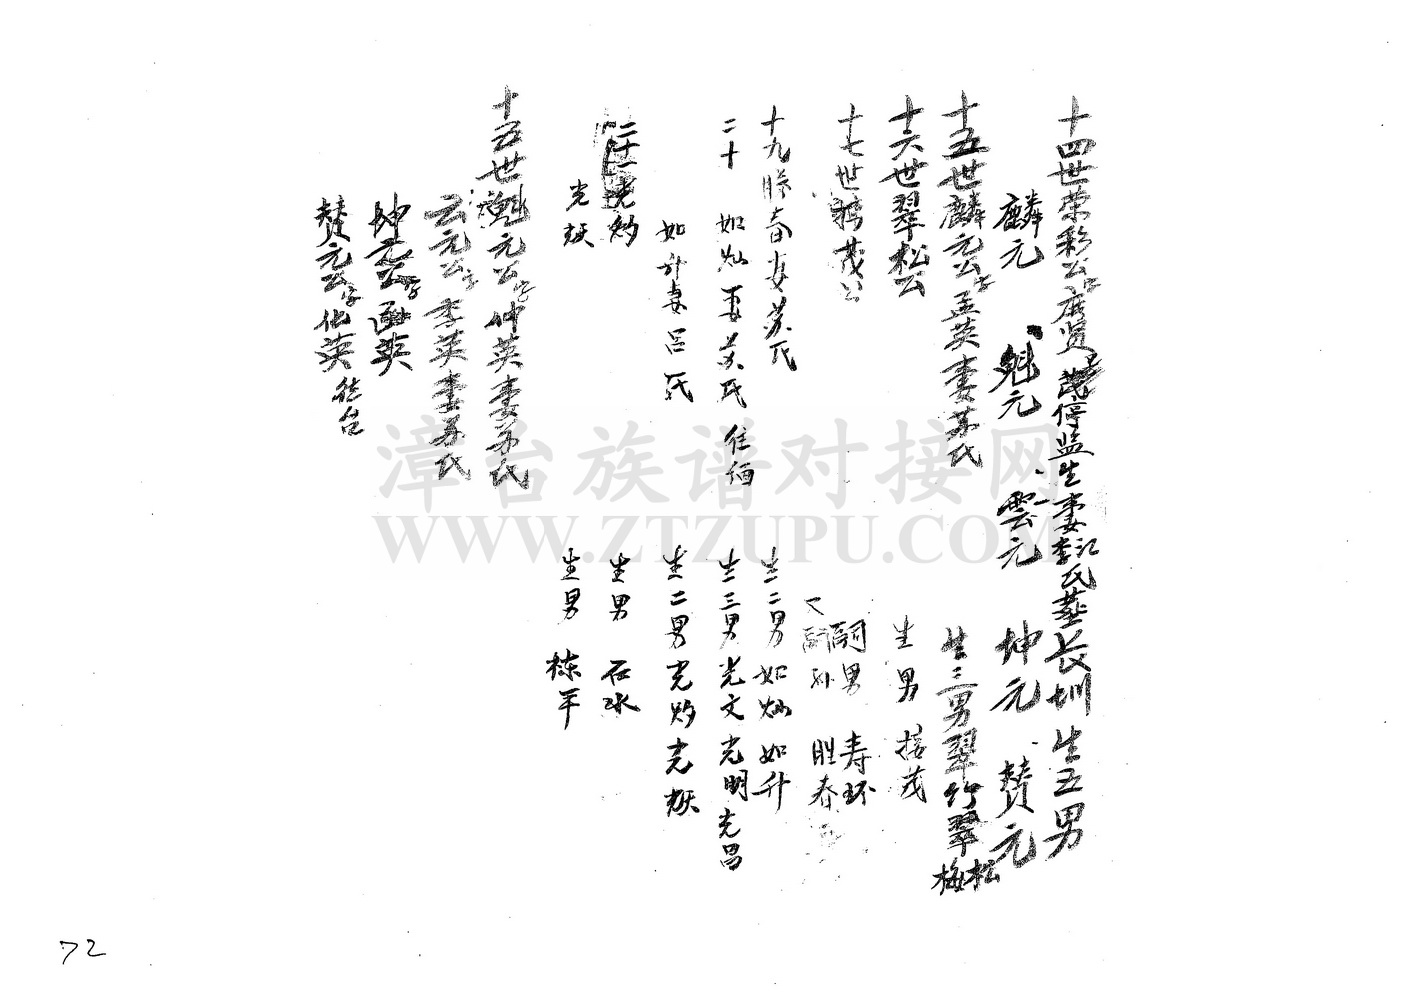 十四世荣彩公 店贤 茂停监生妻江李氏葬长圳 生五男
麟元 魁元 雲元 坤元 赞元
十五世麟元公字孟英妻苏氏 生三男翠竹翠松梅
十六世翠松公 生男 接茂
十七世 茂公 嗣男 寿环
又嗣孙 胜春
十九 春妻苏氏 生二男如灿如升
二十 如灿妻苏氏 住 生三男光文光明光昌
如升妻吕氏 生二男光灿光
二十一光 生男 石水
光 生男 栋平
十五世魁元公字仲英妻苏氏
云元公字季英妻苏氏
坤元公字 英
赞元公字 英 往台
漳台族谱对接网
WWW.ZTZUPU.COM
72